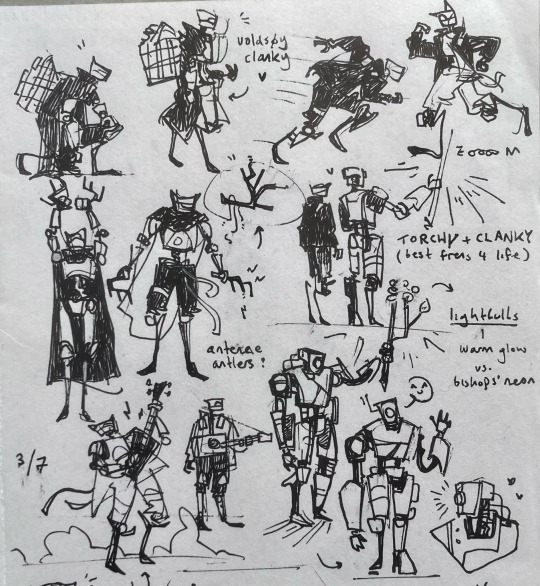 voldsøy
clanky
Zoooo M
TORCHY + CLANKY
(best frens 4 life)
lightbulbs
warm glow
vs.
bishops' neon
antenae
antlers?
3/7